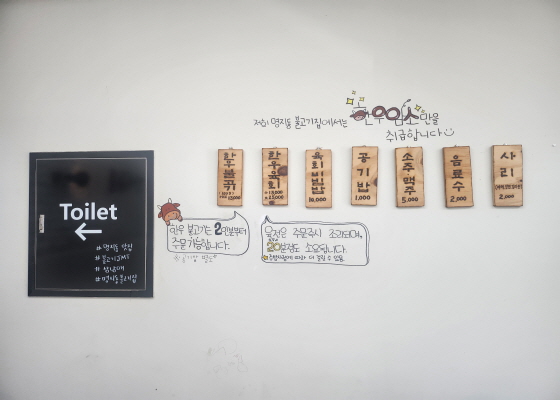 저희 명지동 불고기집에서는 한우암소만을
취급합니다
한우불고기
한우육회
육회비빔밥
10,000
공기밥
1,000
소주맥주
5,000
음료수
2,000
사리
2,000
Toilet
#명지동 맛집
#불고기JMT
한우 불고기는 2인분부터
주문 가능합니다.
※공기밥 별도
육전은 주문즉시 조리되며,
20분정도 소요됩니다.